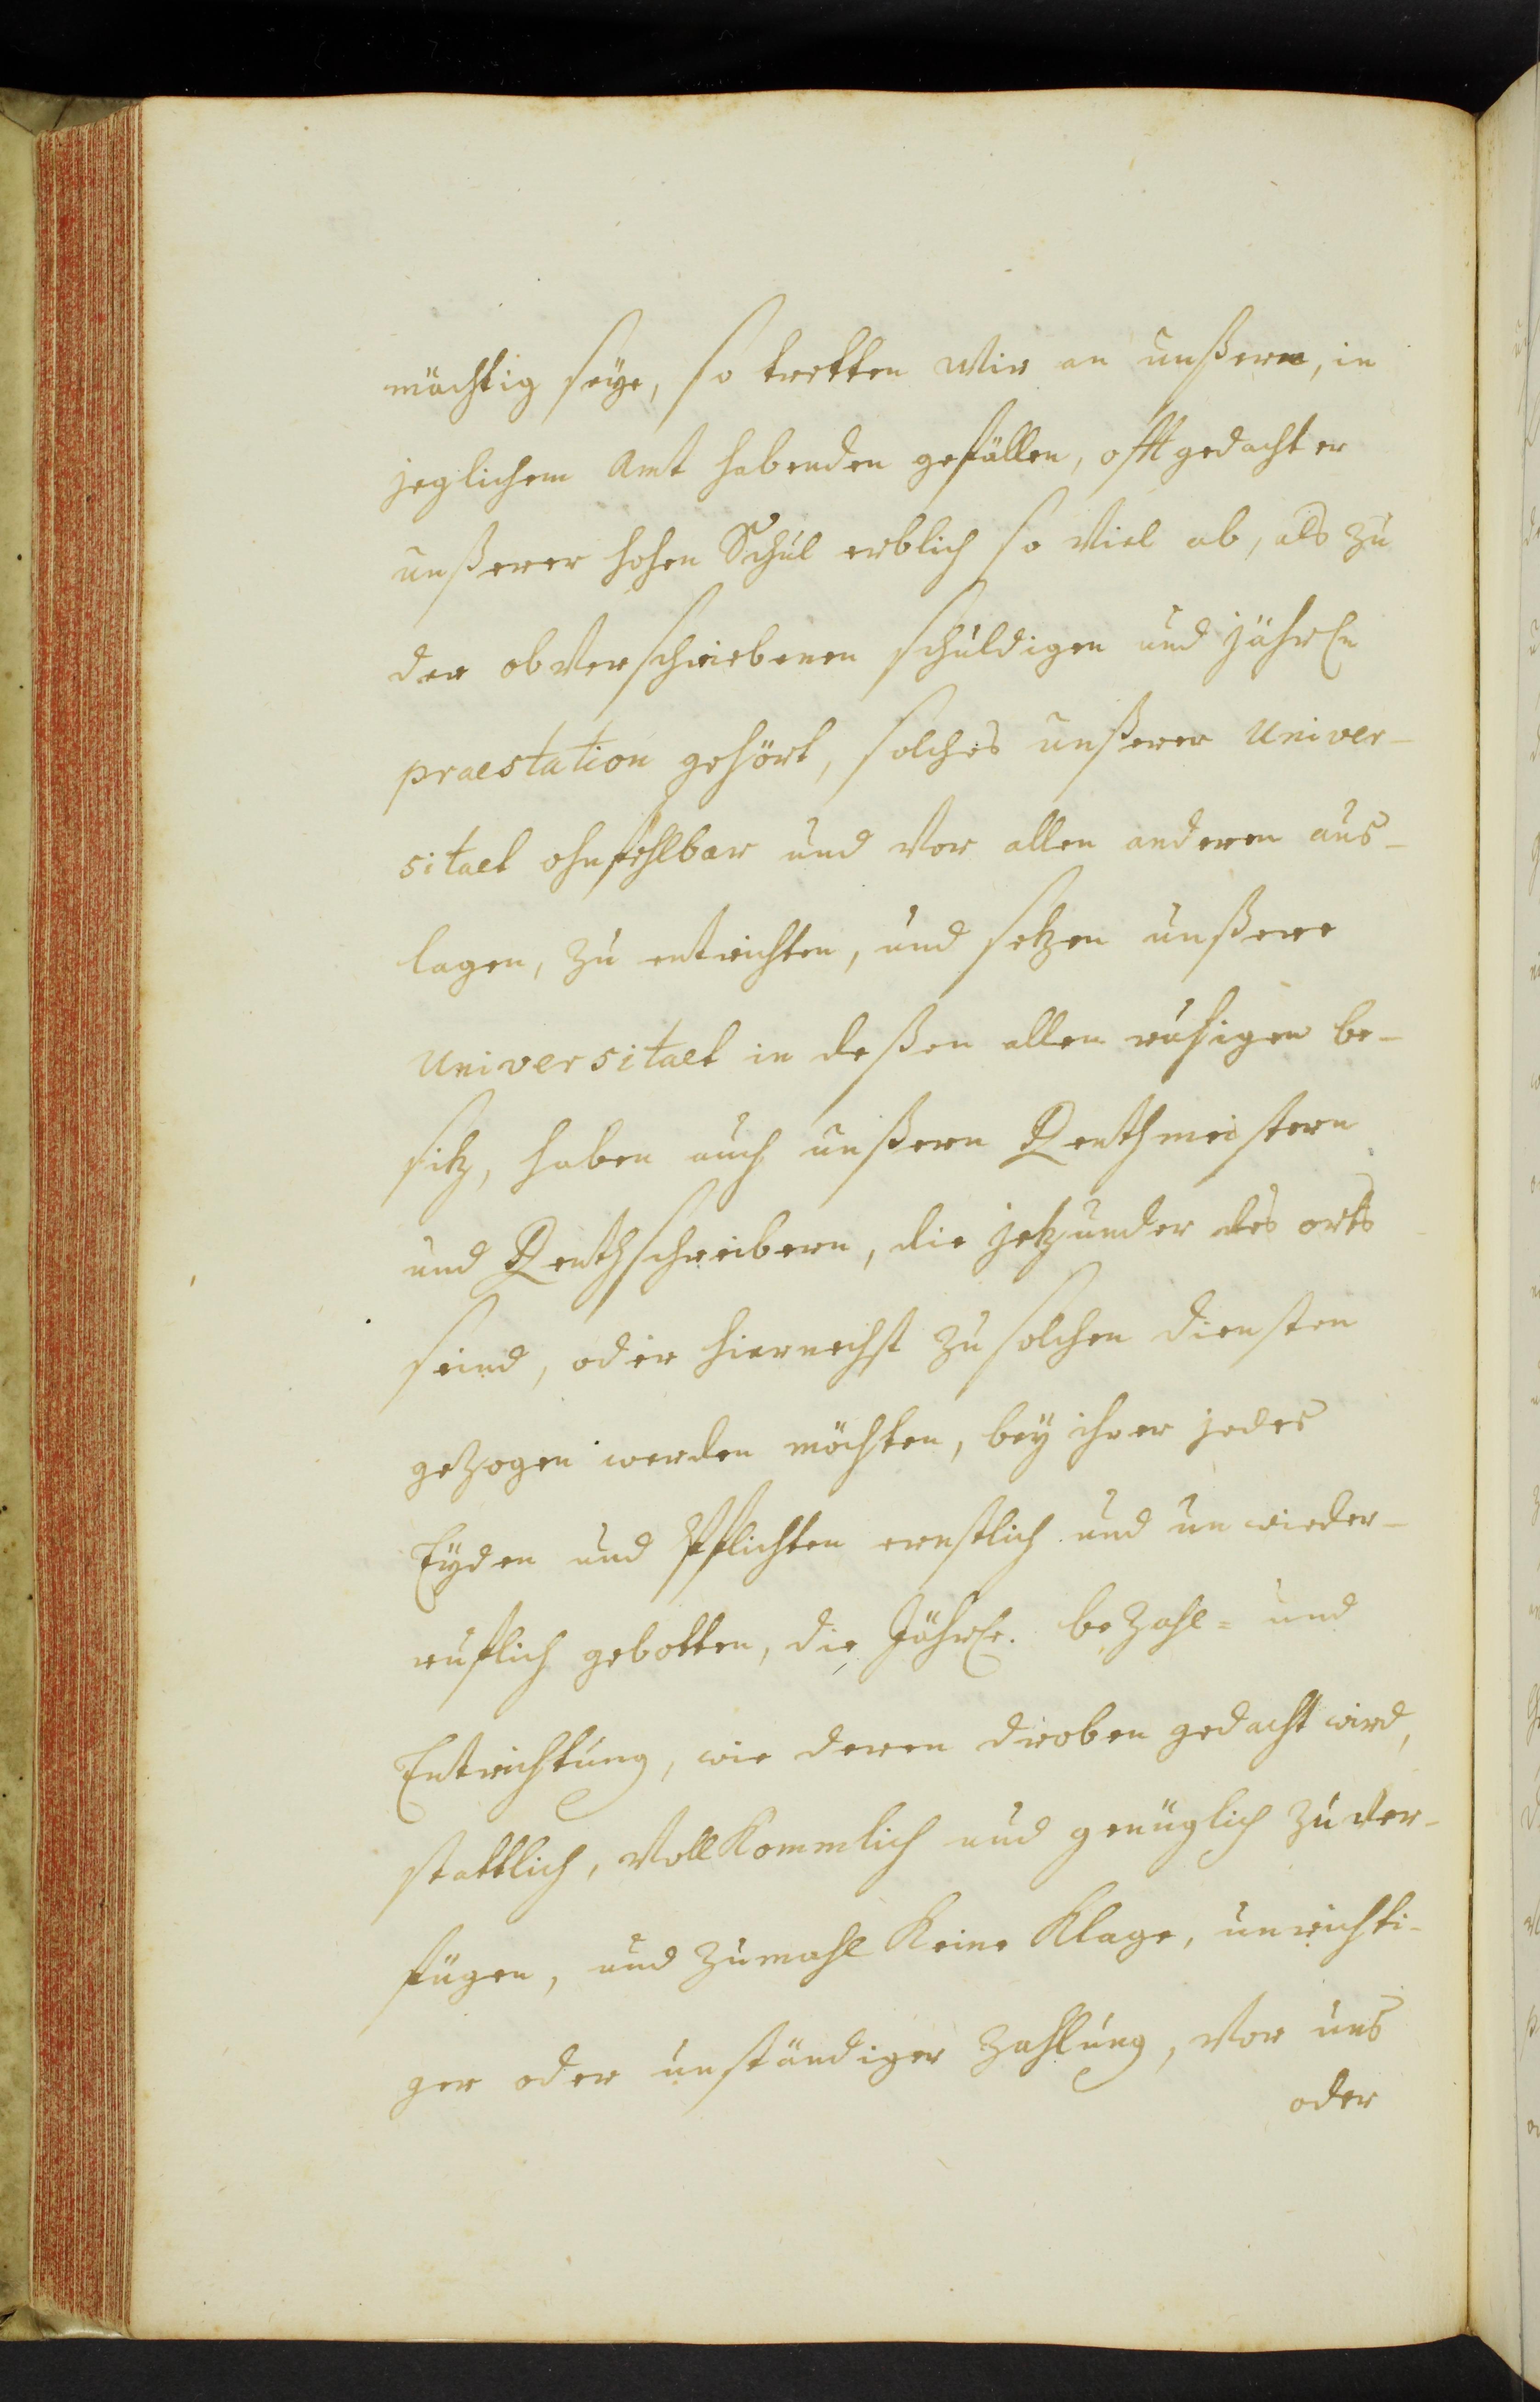 mächtig seye, so tretten wir an unßern, in
jeglichem Amt habenden gefällen, offtgedachter
unßerer hohen Schul erblich so viel ab, als zu
der obverschriebenen schuldigen und jährln
praestation gehört, solches unßerer Univer-
sitaet ohnfehlbar und vor allen anderen aus-
lagen, zu entrichten, und setzen unßere
Universitaet in deßen allen ruhigen be-
sitz, haben auch unßern Renthmeistern
und Renthschreibern, die jetzunder des orts
seind, oder hiernechst zu solchen diensten
gezogen werden möchten, bey ihrer jedes
Eyden und Pflichten ernstlich und unwieder-
ruflich gebotten, die Jährle. bezahl= und
Entrichtung, wie deren droben gedacht wird,
stattlich, vollkommlich und genüglich zu ver-
fügen, und zumahl keine Klage, unrichti-
ger oder unständiger Zahlung, vor uns
oder